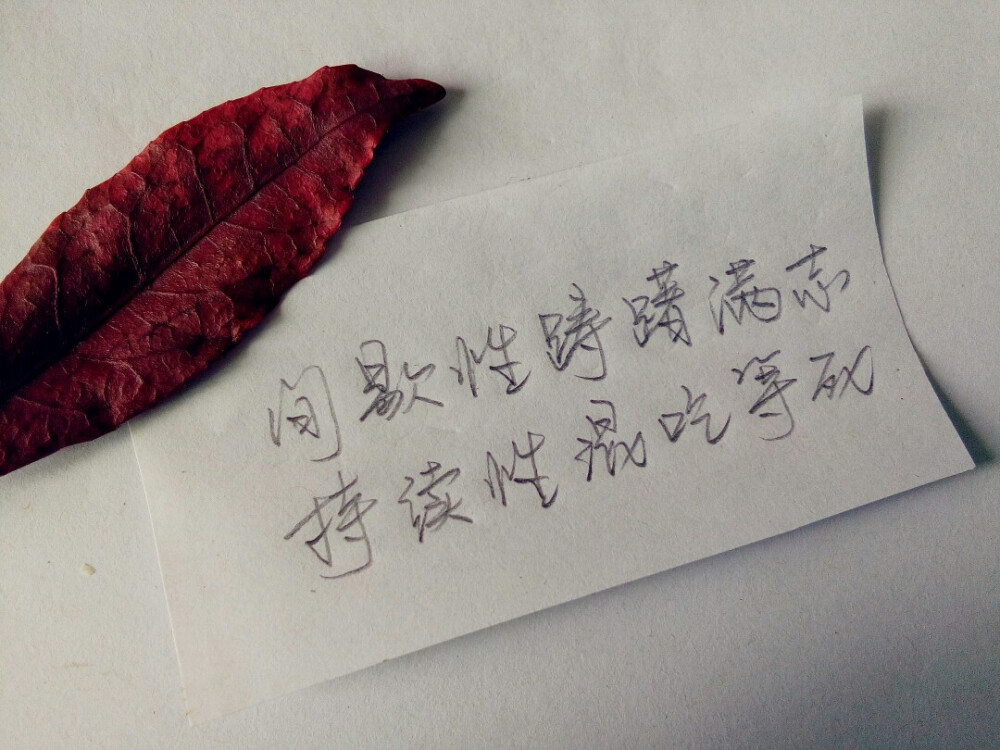 间歇性踌躇满志
持续性混吃等死